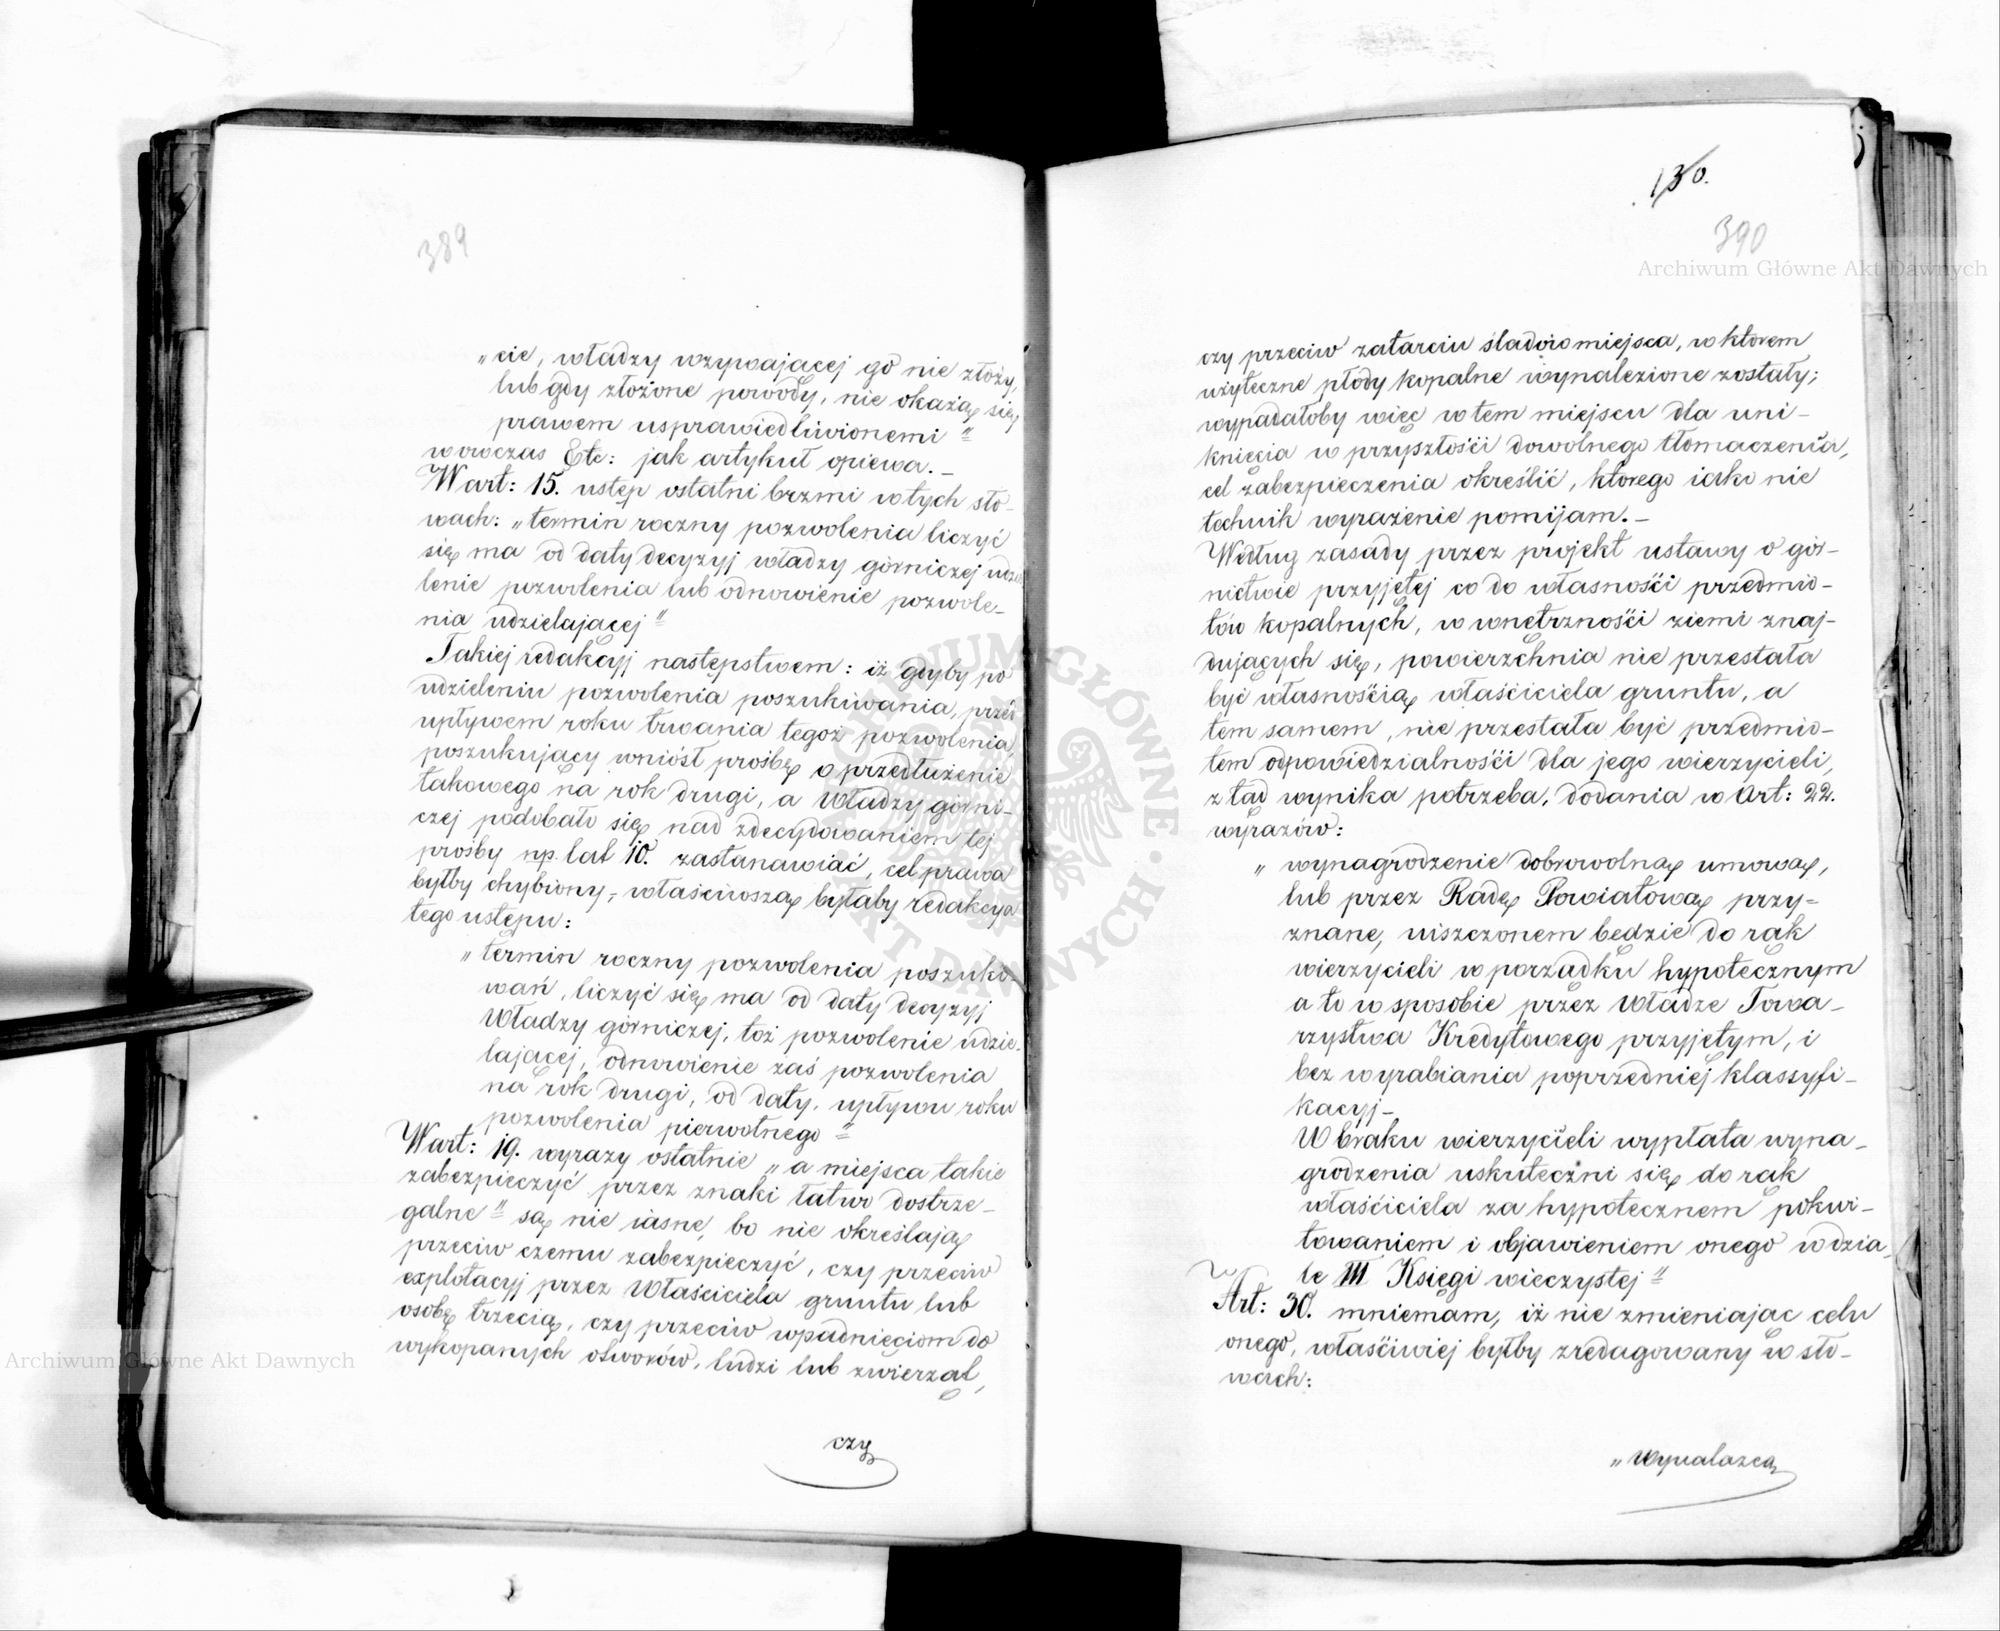 389
„cie, władzy wzywającej go nie złoży,
lub gdy złożone powody, nie okażą się
prawem usprawiedliwionemi"
wowczas Etc: jak artykuł opiewa.—
W art: 15. ustęp ostatni brzmi w tych sło-
wach: „termin roczny pozwolenia liczyć
się ma od daty decyzyj władzy górniczej udzie
lenie pozwolenia lub odnowienie pozwole-
nia udzielającej"
Takiej redakcyj następstwem: iż gdyby po
udzieleniu pozwolenia poszukiwania, przed
upływem roku trwania tegoż pozwolenia,
poszukujący wniósł prośbę o przedłużenie
takowego na rok drugi, a Władzy górni-
czej podobało się nad zdecydowaniem tej
prośby np. lat 10. zastanawiać, cel prawa
byłby chybiony,- właściwoszą byłaby redakcya
tego ustępu:
„termin roczny pozwolenia poszuki-
wań, liczyć się ma od daty decyzyj
Władzy górniczej, toż pozwolenie udzie-
lającej, odnowienie zaś pozwolenia
na rok drugi, od daty, upływu roku
pozwolenia pierwotnego"
W art: 19. wyrazy ostatnie „a miejsca takie
zabezpieczyć przez znaki łatwo dostrze-
galne" są nie iasne, bo nie określają
przeciw czemu zabezpieczyć, czy przeciw
explotacyj przez Właściciela gruntu lub
osobę trzecią, czy przeciw wpadnięciom do
wykopanych otworów, ludzi lub zwierząt,
czy
130.
390
czy przeciw zatarciu śladów miejsca, w ktorem
użyteczne płody kopalne wynalezione zostały;
wypadałoby więc w tem miejscu dla uni-
knięcia w przyszłości dowolnego tłomaczenia,
cel zabezpieczenia określić, którego iako nie
technik wyrażenie pomijam.—
Według zasady przez projekt ustawy o gór-
nictwie przyjętej co do własności przedmio-
tów kopalnych, w wnętrzności ziemi znaj-
dujących się, powierzchnia nie przestała
być własnością właściciela gruntu, a
tem samem, nie przestała być przedmio-
tem odpowiedzialności dla jego wierzycieli,
z tąd wynika potrzeba, dodania w Art: 22.
wyrazów:
„wynagrodzenie dobrowolną umową,
lub przez Radę Powiatową przy-
znane, uiszczonem będzie do rąk
wierzycieli w porządku hypotecznym
a to w sposobie przez Władze Towa-
rzystwa Kredytowego przyjętym, i
bez wyrabiania poprzedniej klassyfi-
kacyj—
W braku wierzycieli wypłata wyna-
grodzenia uskuteczni się do rąk
właściciela za hypotecznem pokwi-
towaniem i objawieniem onego w dzia-
le III Księgi wieczystej"
W
Art: 30. mniemam, iż nie zmieniając celu
onego, właściwiej byłby zredagowany w sło-
wach:
„Wynalazca
Archiwum Główne Akt Dawnych
Archiwum Główne Akt Dawnych
ARCHIWUM GŁÓWNE AKT DAWNYCH